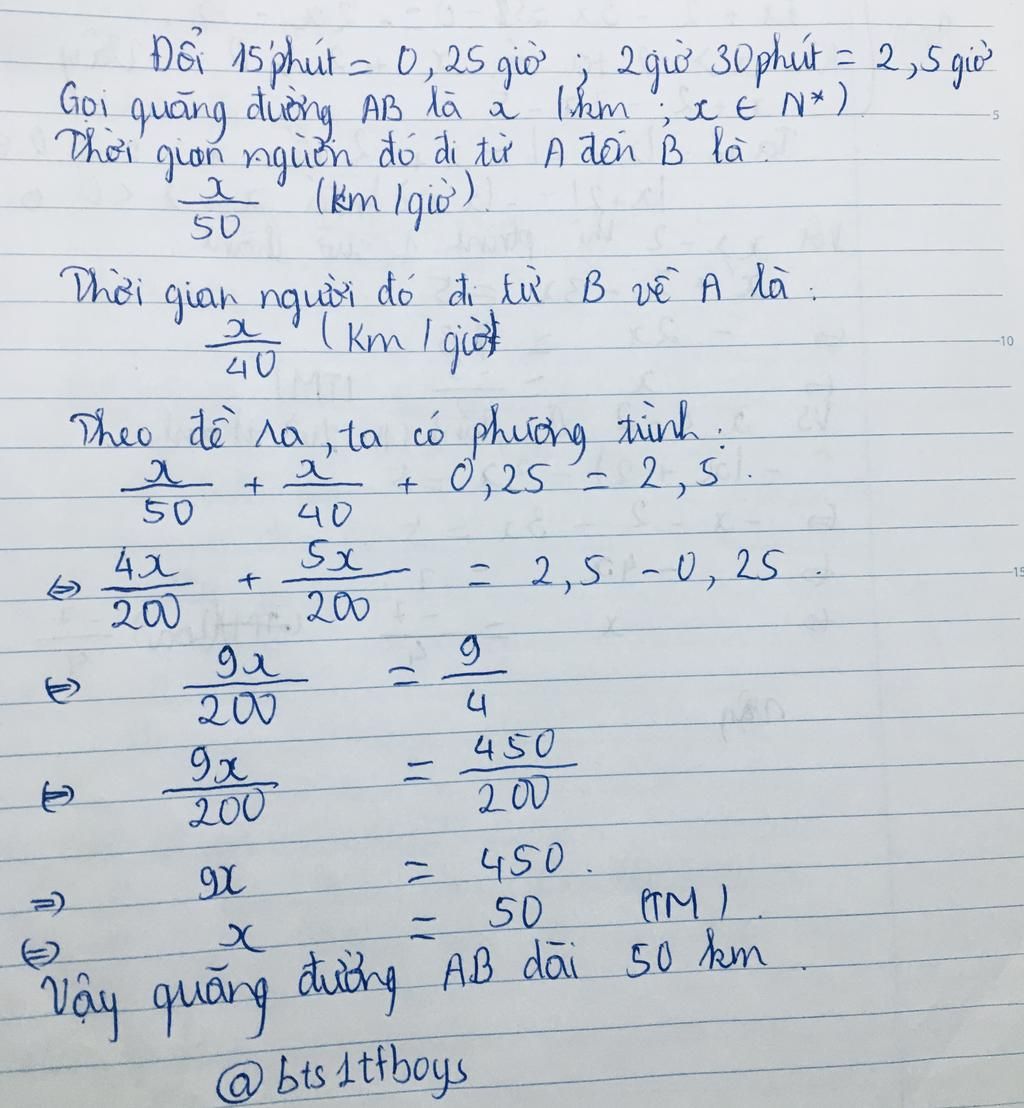 Đổi 15 phút = 0,25 giờ ; 2 giờ 30 phút = 2,5 giờ
Gọi quãng đường AB là x (km ; x ∈ N*)
Thời gian người đó đi từ A đến B là:
x/50 (km/giờ)
Thời gian người đó đi từ B về A là:
x/40 (km/giờ)
Theo đề ra, ta có phương trình:
x/50 + x/40 + 0,25 = 2,5.
⇔ 4x/200 + 5x/200 = 2,5 - 0,25.
⇔ 9x/200 = 9/4
⇔ 9x/200 = 450/200
⇒ 9x = 450.
⇔ x = 50 (TM).
Vậy quãng đường AB dài 50 km.
@bts1tfboys
5
10
15